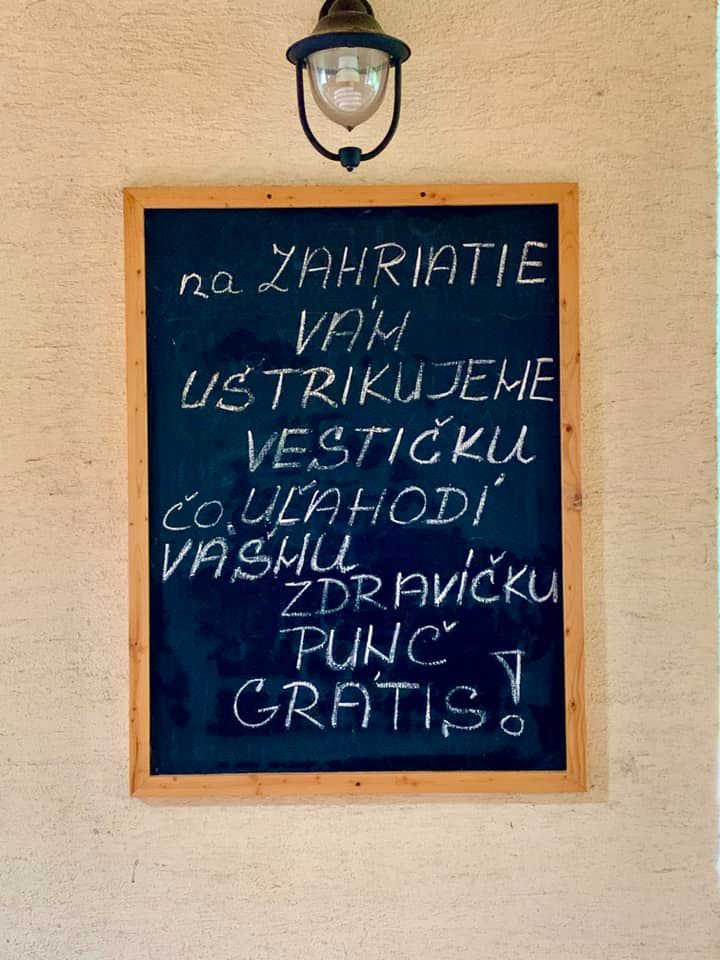 na ZAHRIATIE
VÁM
UŠTRIKUJEME
VESTIČKU
čo UĽAHODÍ
VÁŠMU
ZDRAVÍČKU
PUNČ
GRÁTIS!